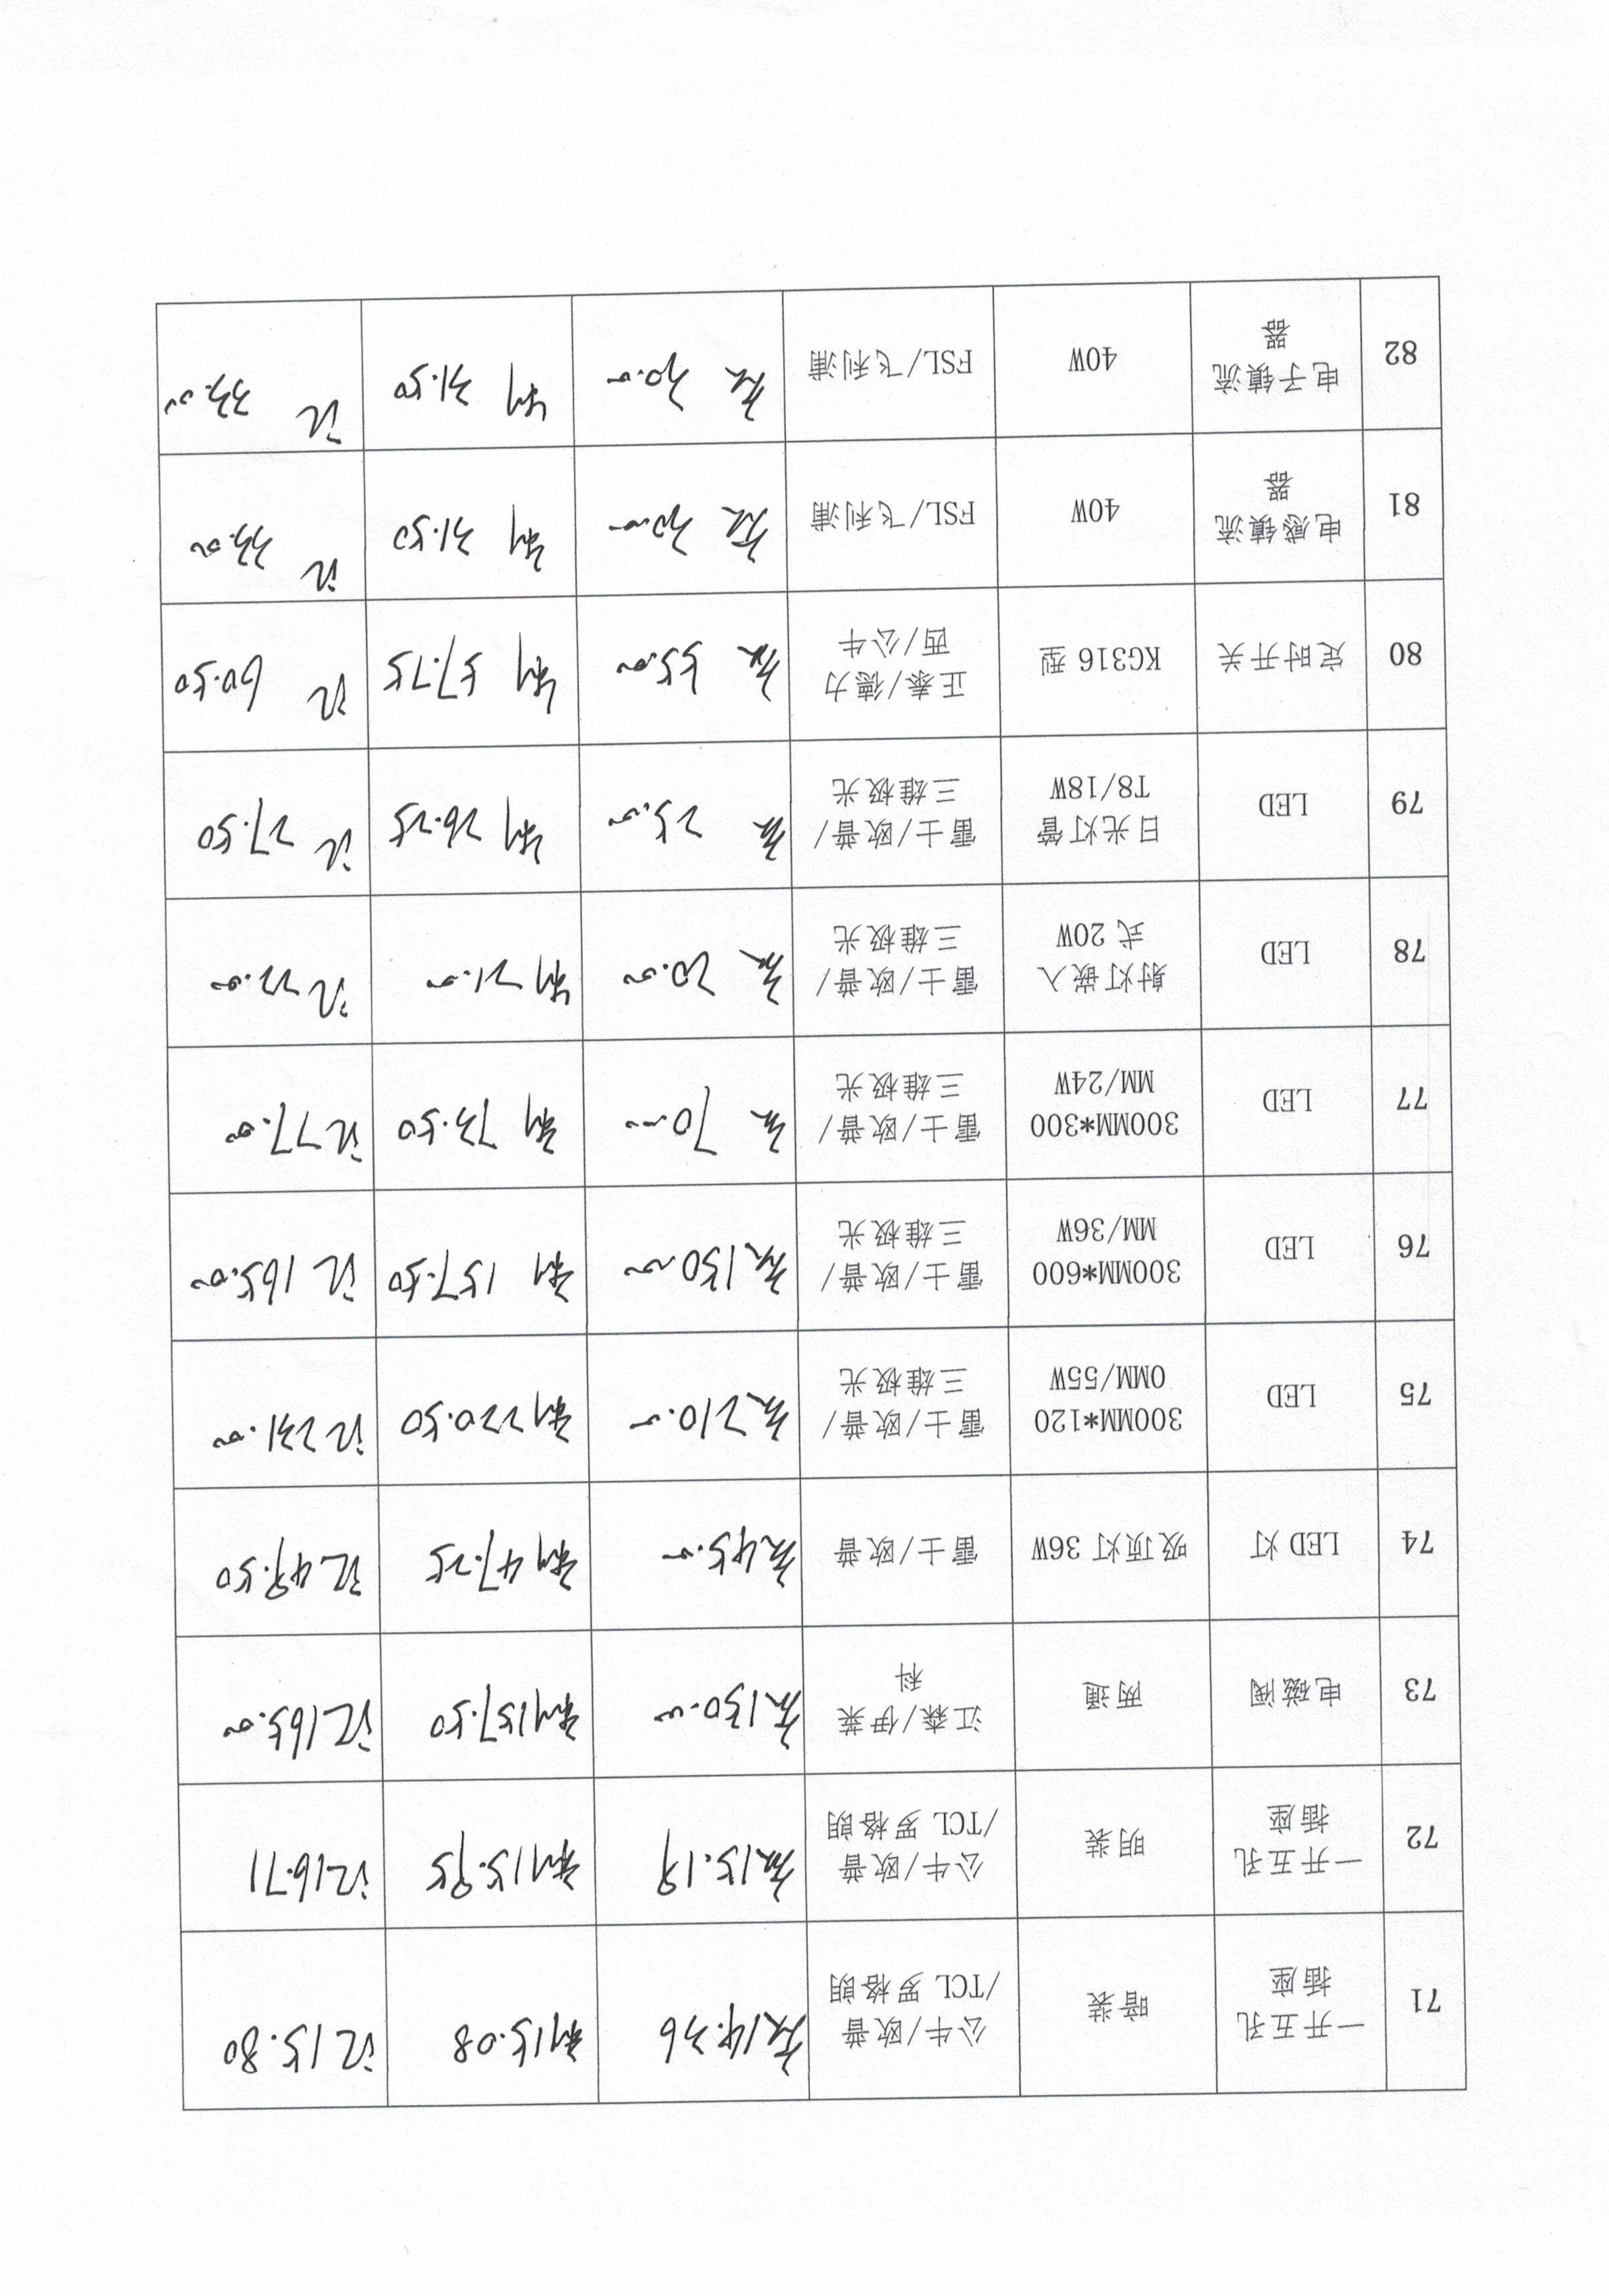 71
一开五孔
插座
暗装
公牛/欧普
/TCL 罗格朗
14.36
15.08
15.80
72
一开五孔
插座
明装
公牛/欧普
/TCL 罗格朗
15.19
15.95
16.71
73
电磁阀
两通
江森/伊莱
科
150.00
157.50
165.00
74
LED 灯
吸顶灯 36W
雷士/欧普
45.00
47.25
49.50
75
LED
300MM*120
0MM/55W
雷士/欧普/
三雄极光
210.00
220.50
231.00
76
LED
300MM*600
MM/36W
雷士/欧普/
三雄极光
150.00
157.50
165.00
77
LED
300MM*300
MM/24W
雷士/欧普/
三雄极光
70.00
73.50
77.00
78
LED
射灯嵌入
式 20W
雷士/欧普/
三雄极光
20.00
21.00
22.00
79
LED
日光灯管
T8/18W
雷士/欧普/
三雄极光
25.00
26.25
27.50
80
定时开关
KG316 型
正泰/德力
西/公牛
55.00
57.75
60.50
81
电感镇流
器
40W
FSL/飞利浦
30.00
31.50
33.00
82
电子镇流
器
40W
FSL/飞利浦
30.00
31.50
33.00